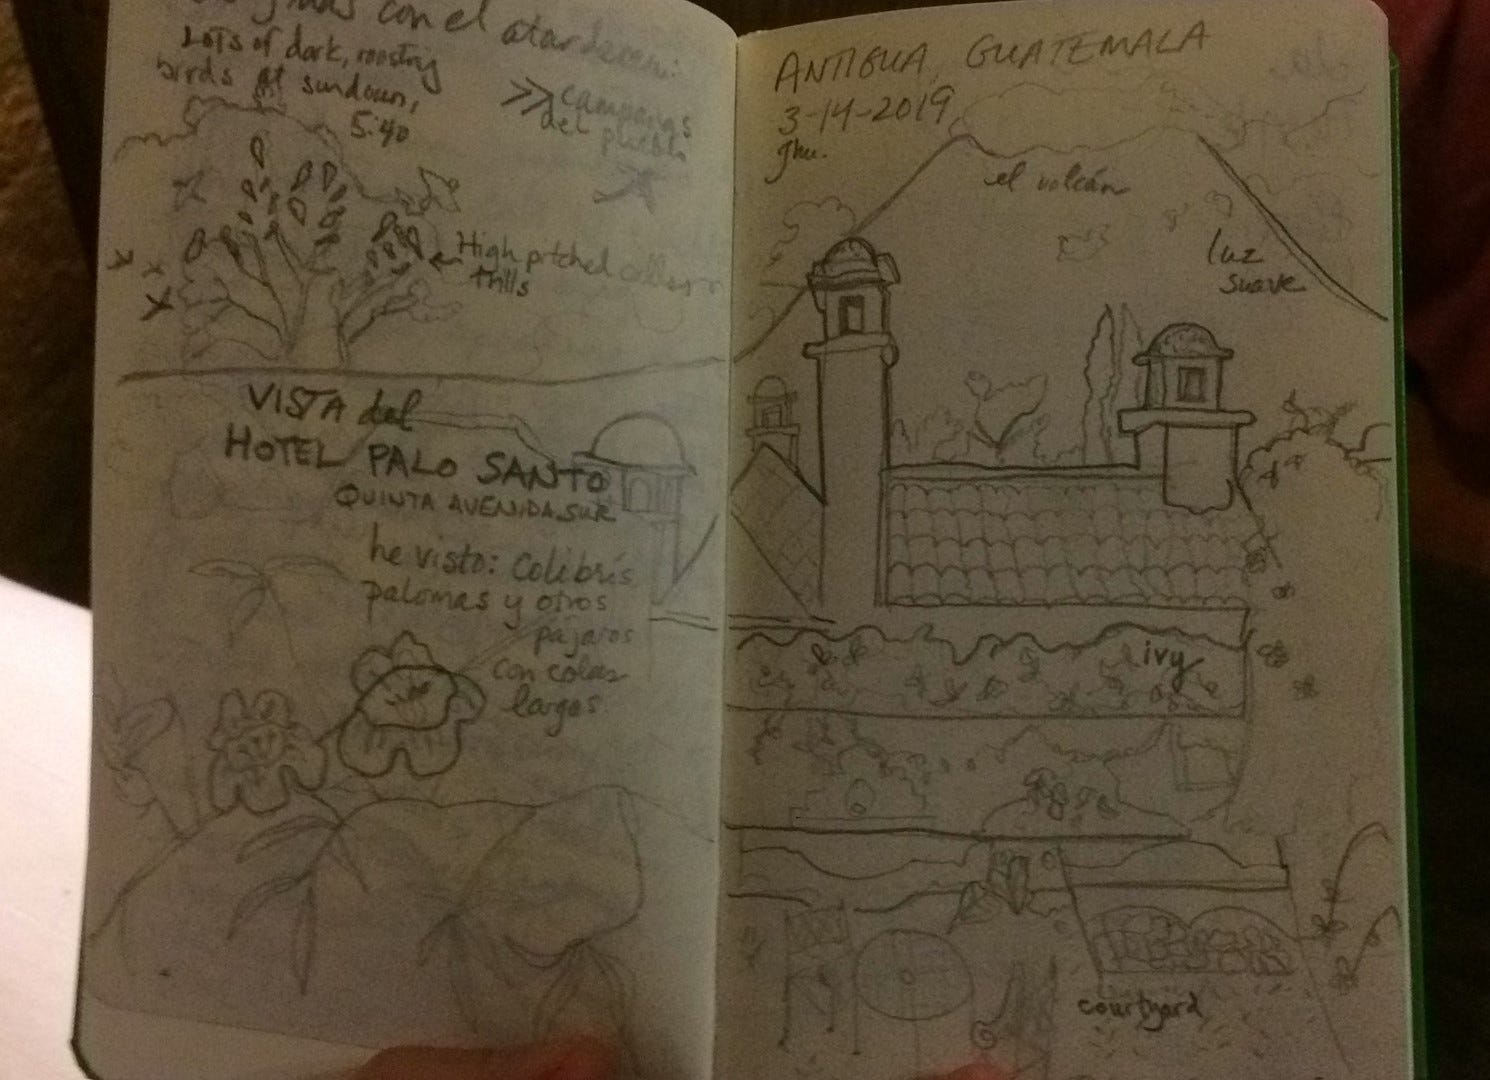 con el atardecer:
Lots of dark, roosting
birds at sundown,
5:40
>> campanas
del pueblo
← High pitched
trills
VISTA del
HOTEL PALO SANTO
QUINTA AVENIDA SUR
he visto: Colibrís
palomas y otros
pájaros
con colas
largas
ANTIGUA, GUATEMALA
3-14-2019
el volcán
luz
suave
ivy
courtyard